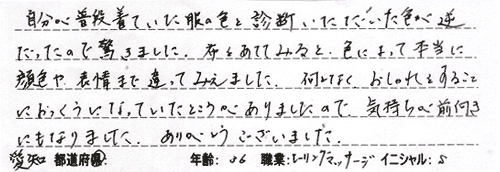 自分が普段着ていた服の色と診断いただいた色が逆
だったので驚きました。布をあててみると、色によって本当に
顔色や表情まで違ってみえました。何となく、おしゃれをすること
におっくうになっていたところがありましたので、気持ちが前向き
にもなりました。ありがとうございました。
愛知 都道府県 年齢: 36 職業: ヒーリングマッサージ イニシャル: S